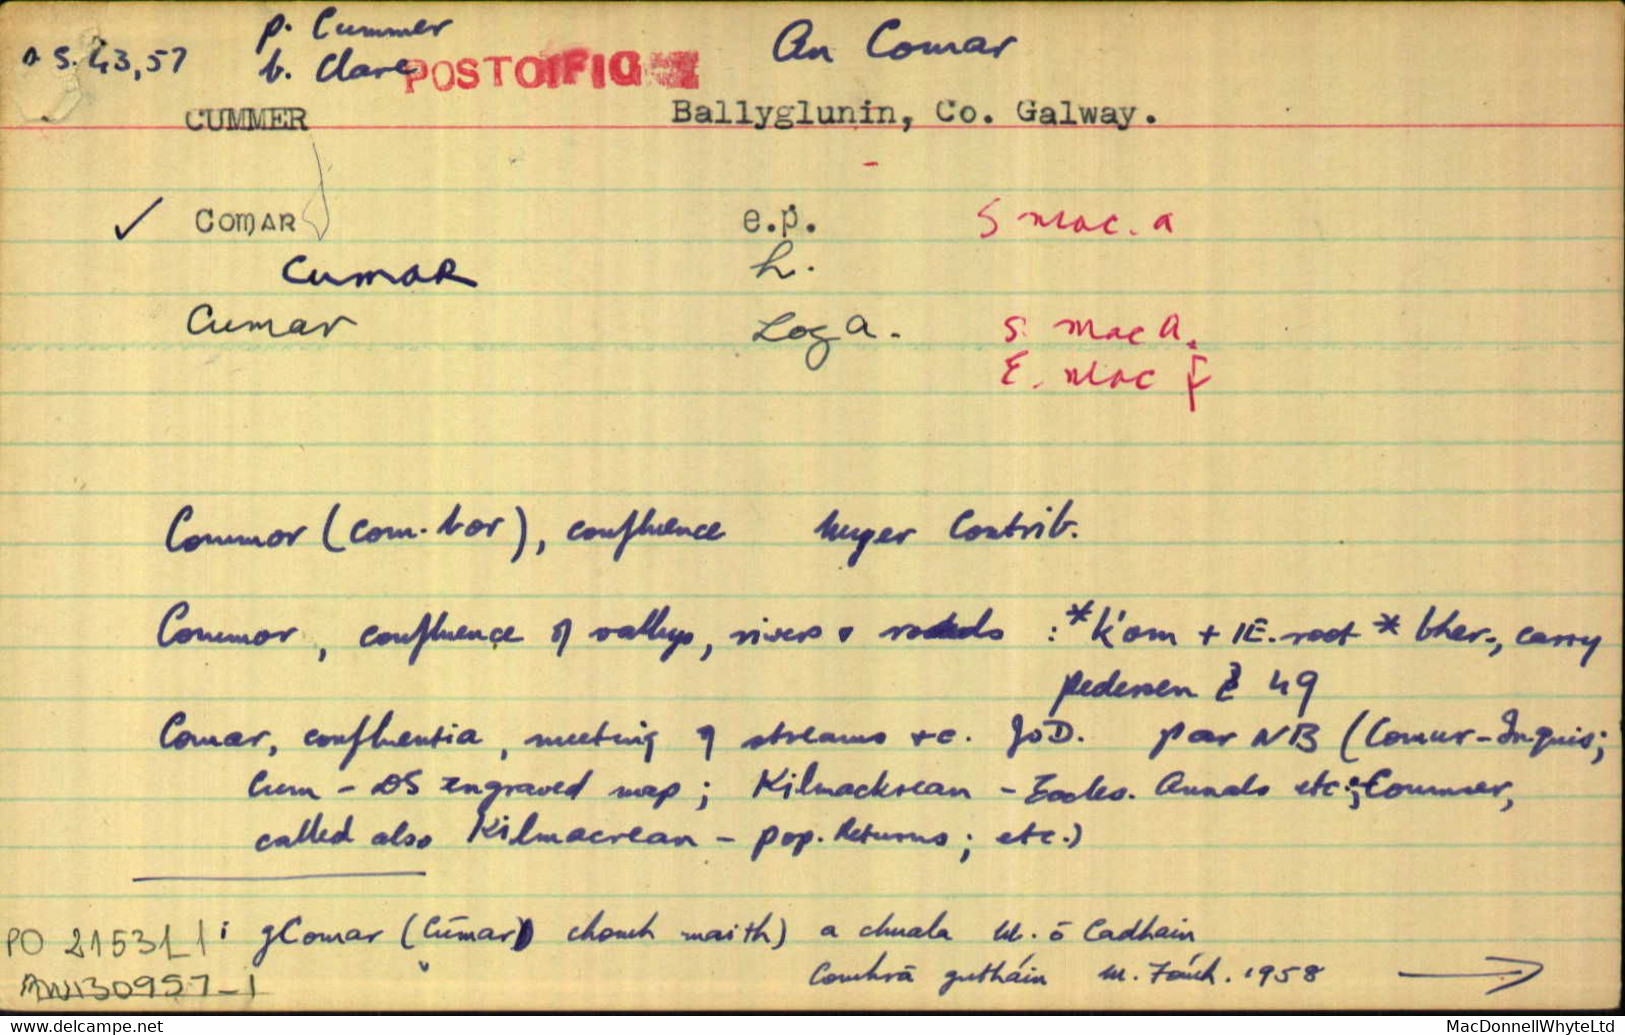 p. Cummer
An Comar
OS. 43,57
b. Clare
POSTOIFIG
CUMMER
Ballyglunin, Co. Galway.
✓ COMAR e.p. S Mac. a
CUMAR h.
Cumar Log a. S. Mac A.
E. Mac F
Commor (com-bor), confluence Meyer Contrib.
Commor, confluence of valleys, rivers & roads : *k'om + IE. root *bher-, carry
Pedersen § 49
Comar, confluentia, meeting of streams +c. JoD. par NB (Comur - Inquis;
Cum - OS Engraved map; Kilmackrean - Eccles. Annals etc.; Coummer,
called also Kilmacrean - Pop. Returns; etc.)
PO 21531
i gComar (Cúmar chomh maith) a chuala M. Ó Cadhain
AW130957-1
Comhrá gutháin M. Fómh. 1958
www.delcampe.net
MacDonnellWhyteLtd